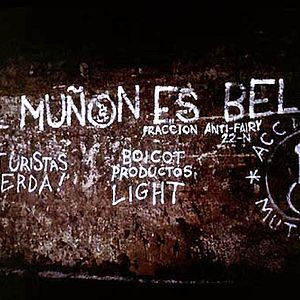 MUÑON ES BEL
FRACCION ANTI-FAIRY
22-N
TURISTAS
ERDA!
BOICOT
PRODUCTOS:
LIGHT
* ACCI
MUT